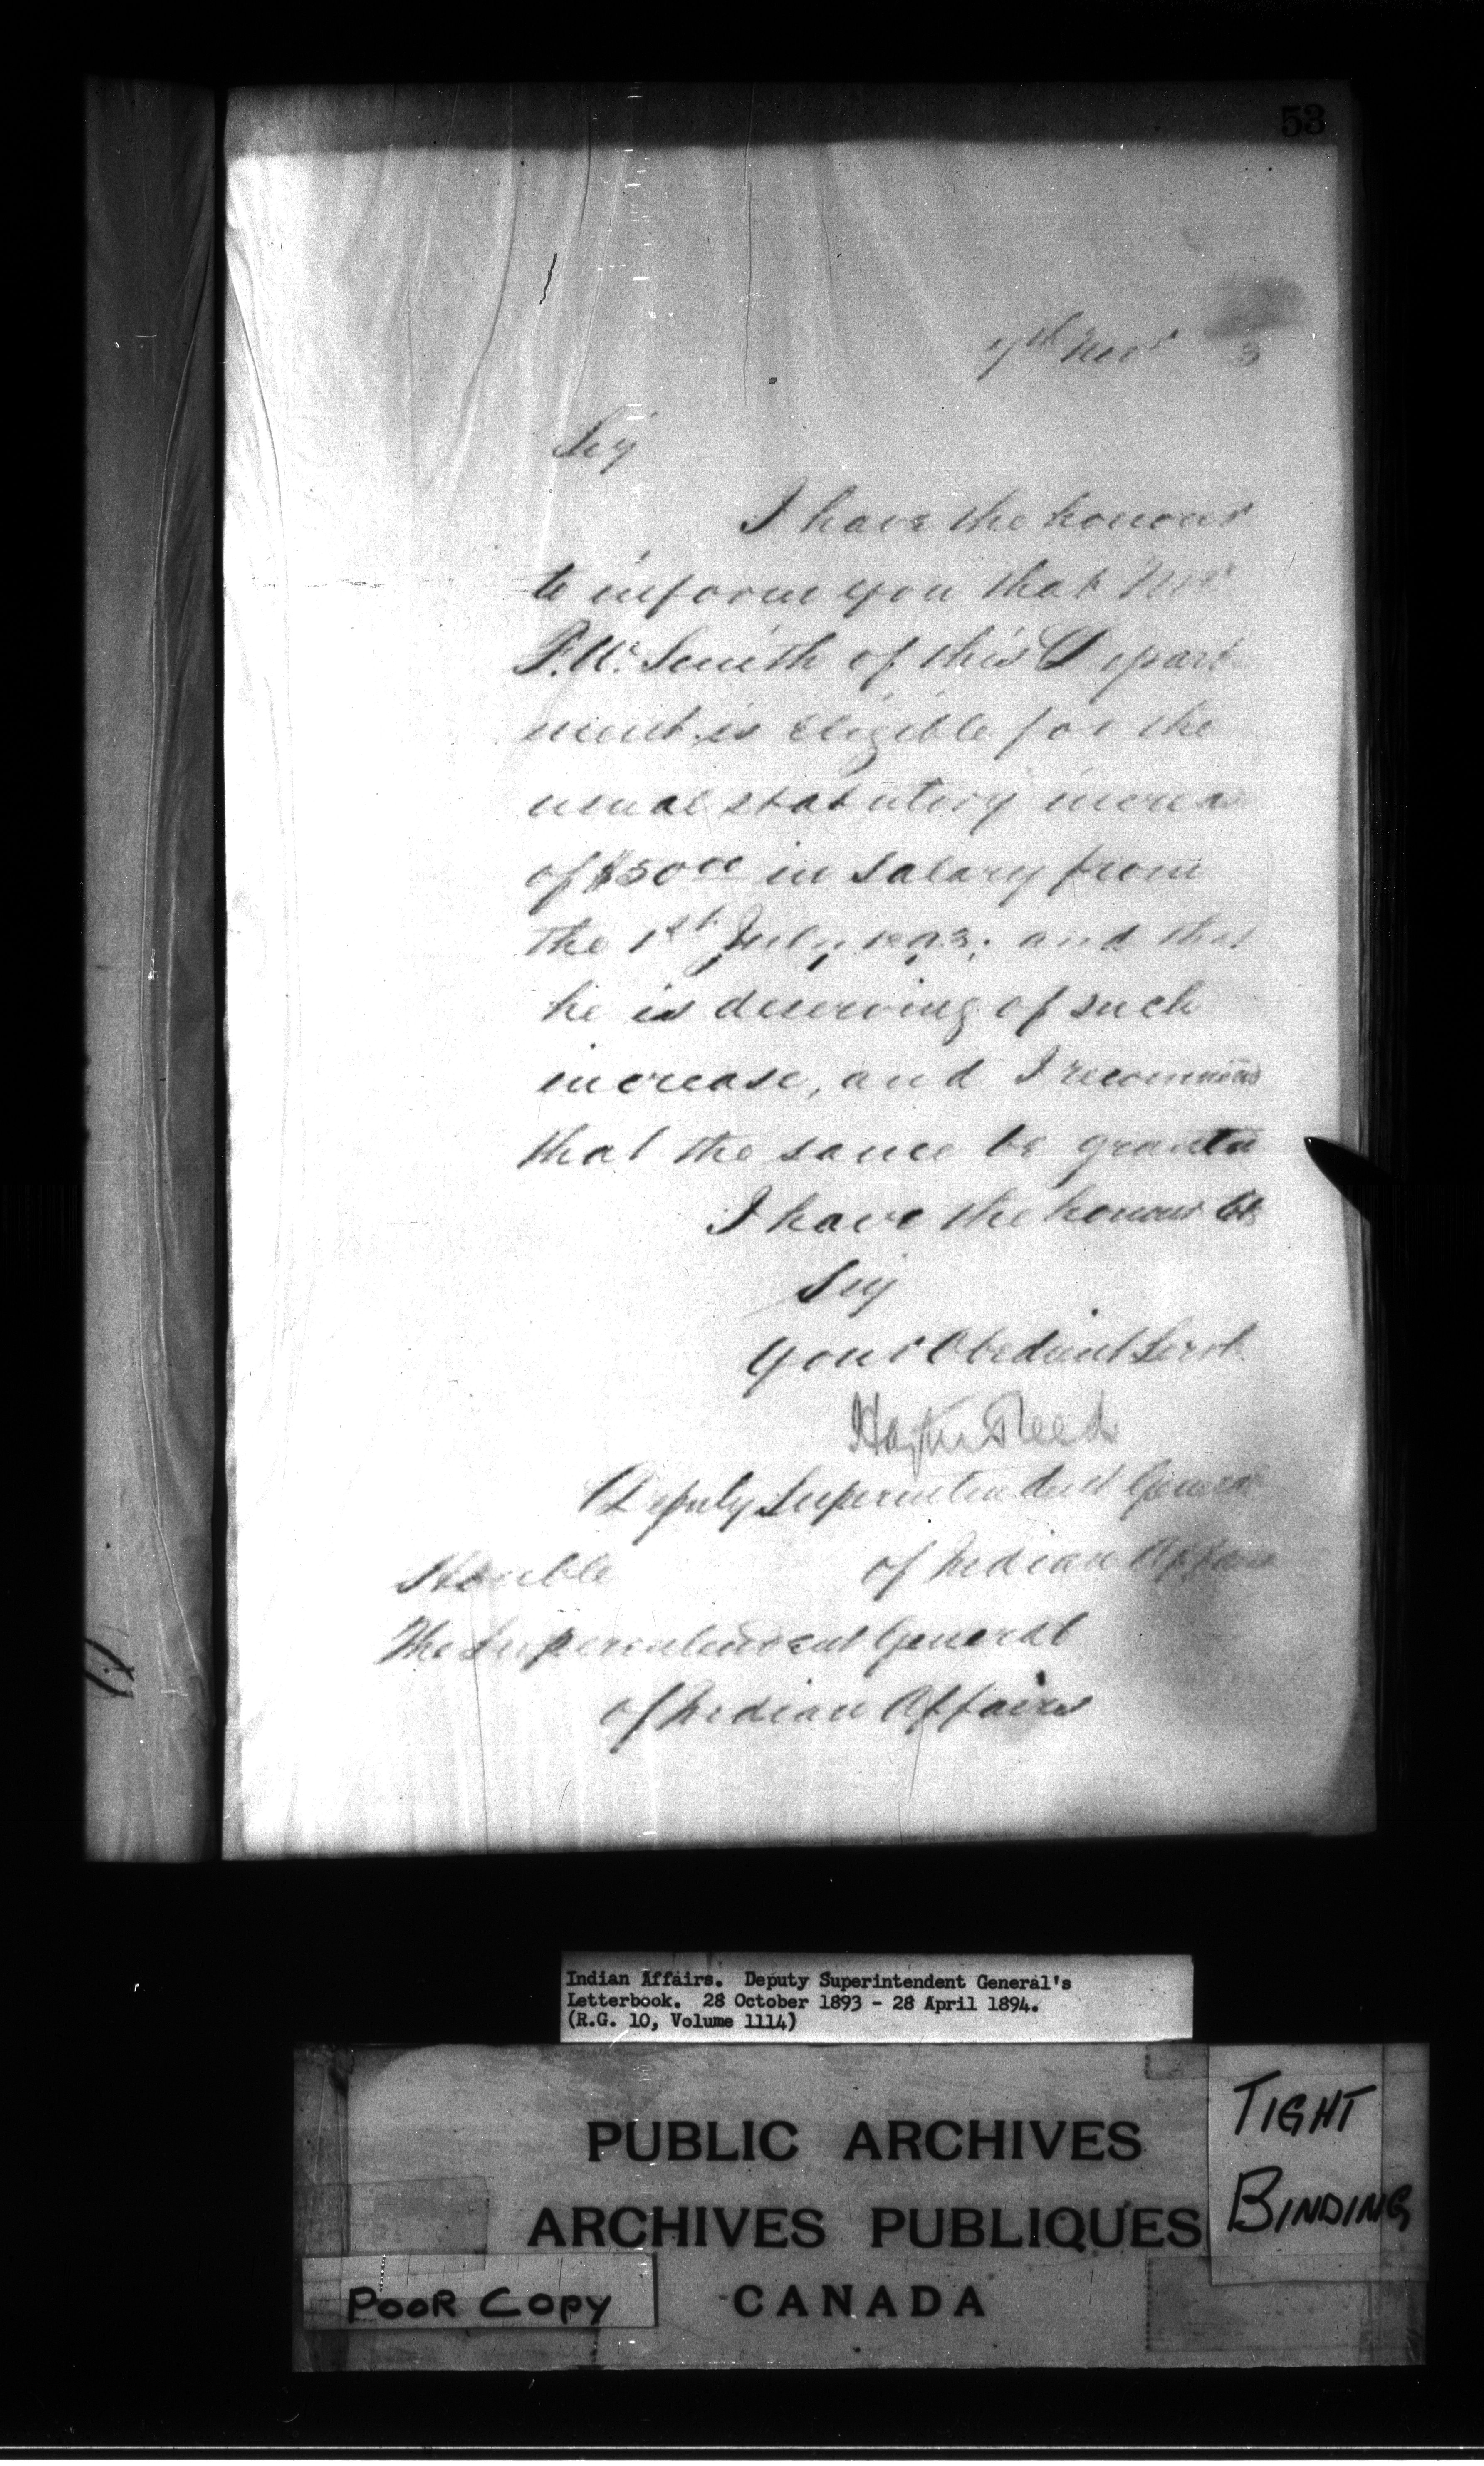 53
7th Novr 3
Sir
I have the honour
to inform you that Mr
F. W. Smith of this Depart
ment is eligible for the
usual statutory increas
of $50 00 in salary from
the 1st July, 1893, and that
he is deserving of such
increase, and I recommend
that the same be granted
I have the honour to be
Sir
Your Obedient Servt
Hayter Reed
Deputy Superintendent General
of Indian Affairs
Honble
The Superintendent General
of Indian Affairs
Indian Affairs. Deputy Superintendent General's
Letterbook. 28 October 1893 - 28 April 1894.
(R.G. 10, Volume 1114)
PUBLIC ARCHIVES
ARCHIVES PUBLIQUES
CANADA
TIGHT
BINDING
POOR COPY